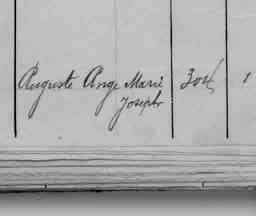 Auguste Ange Marie
Joseph
1